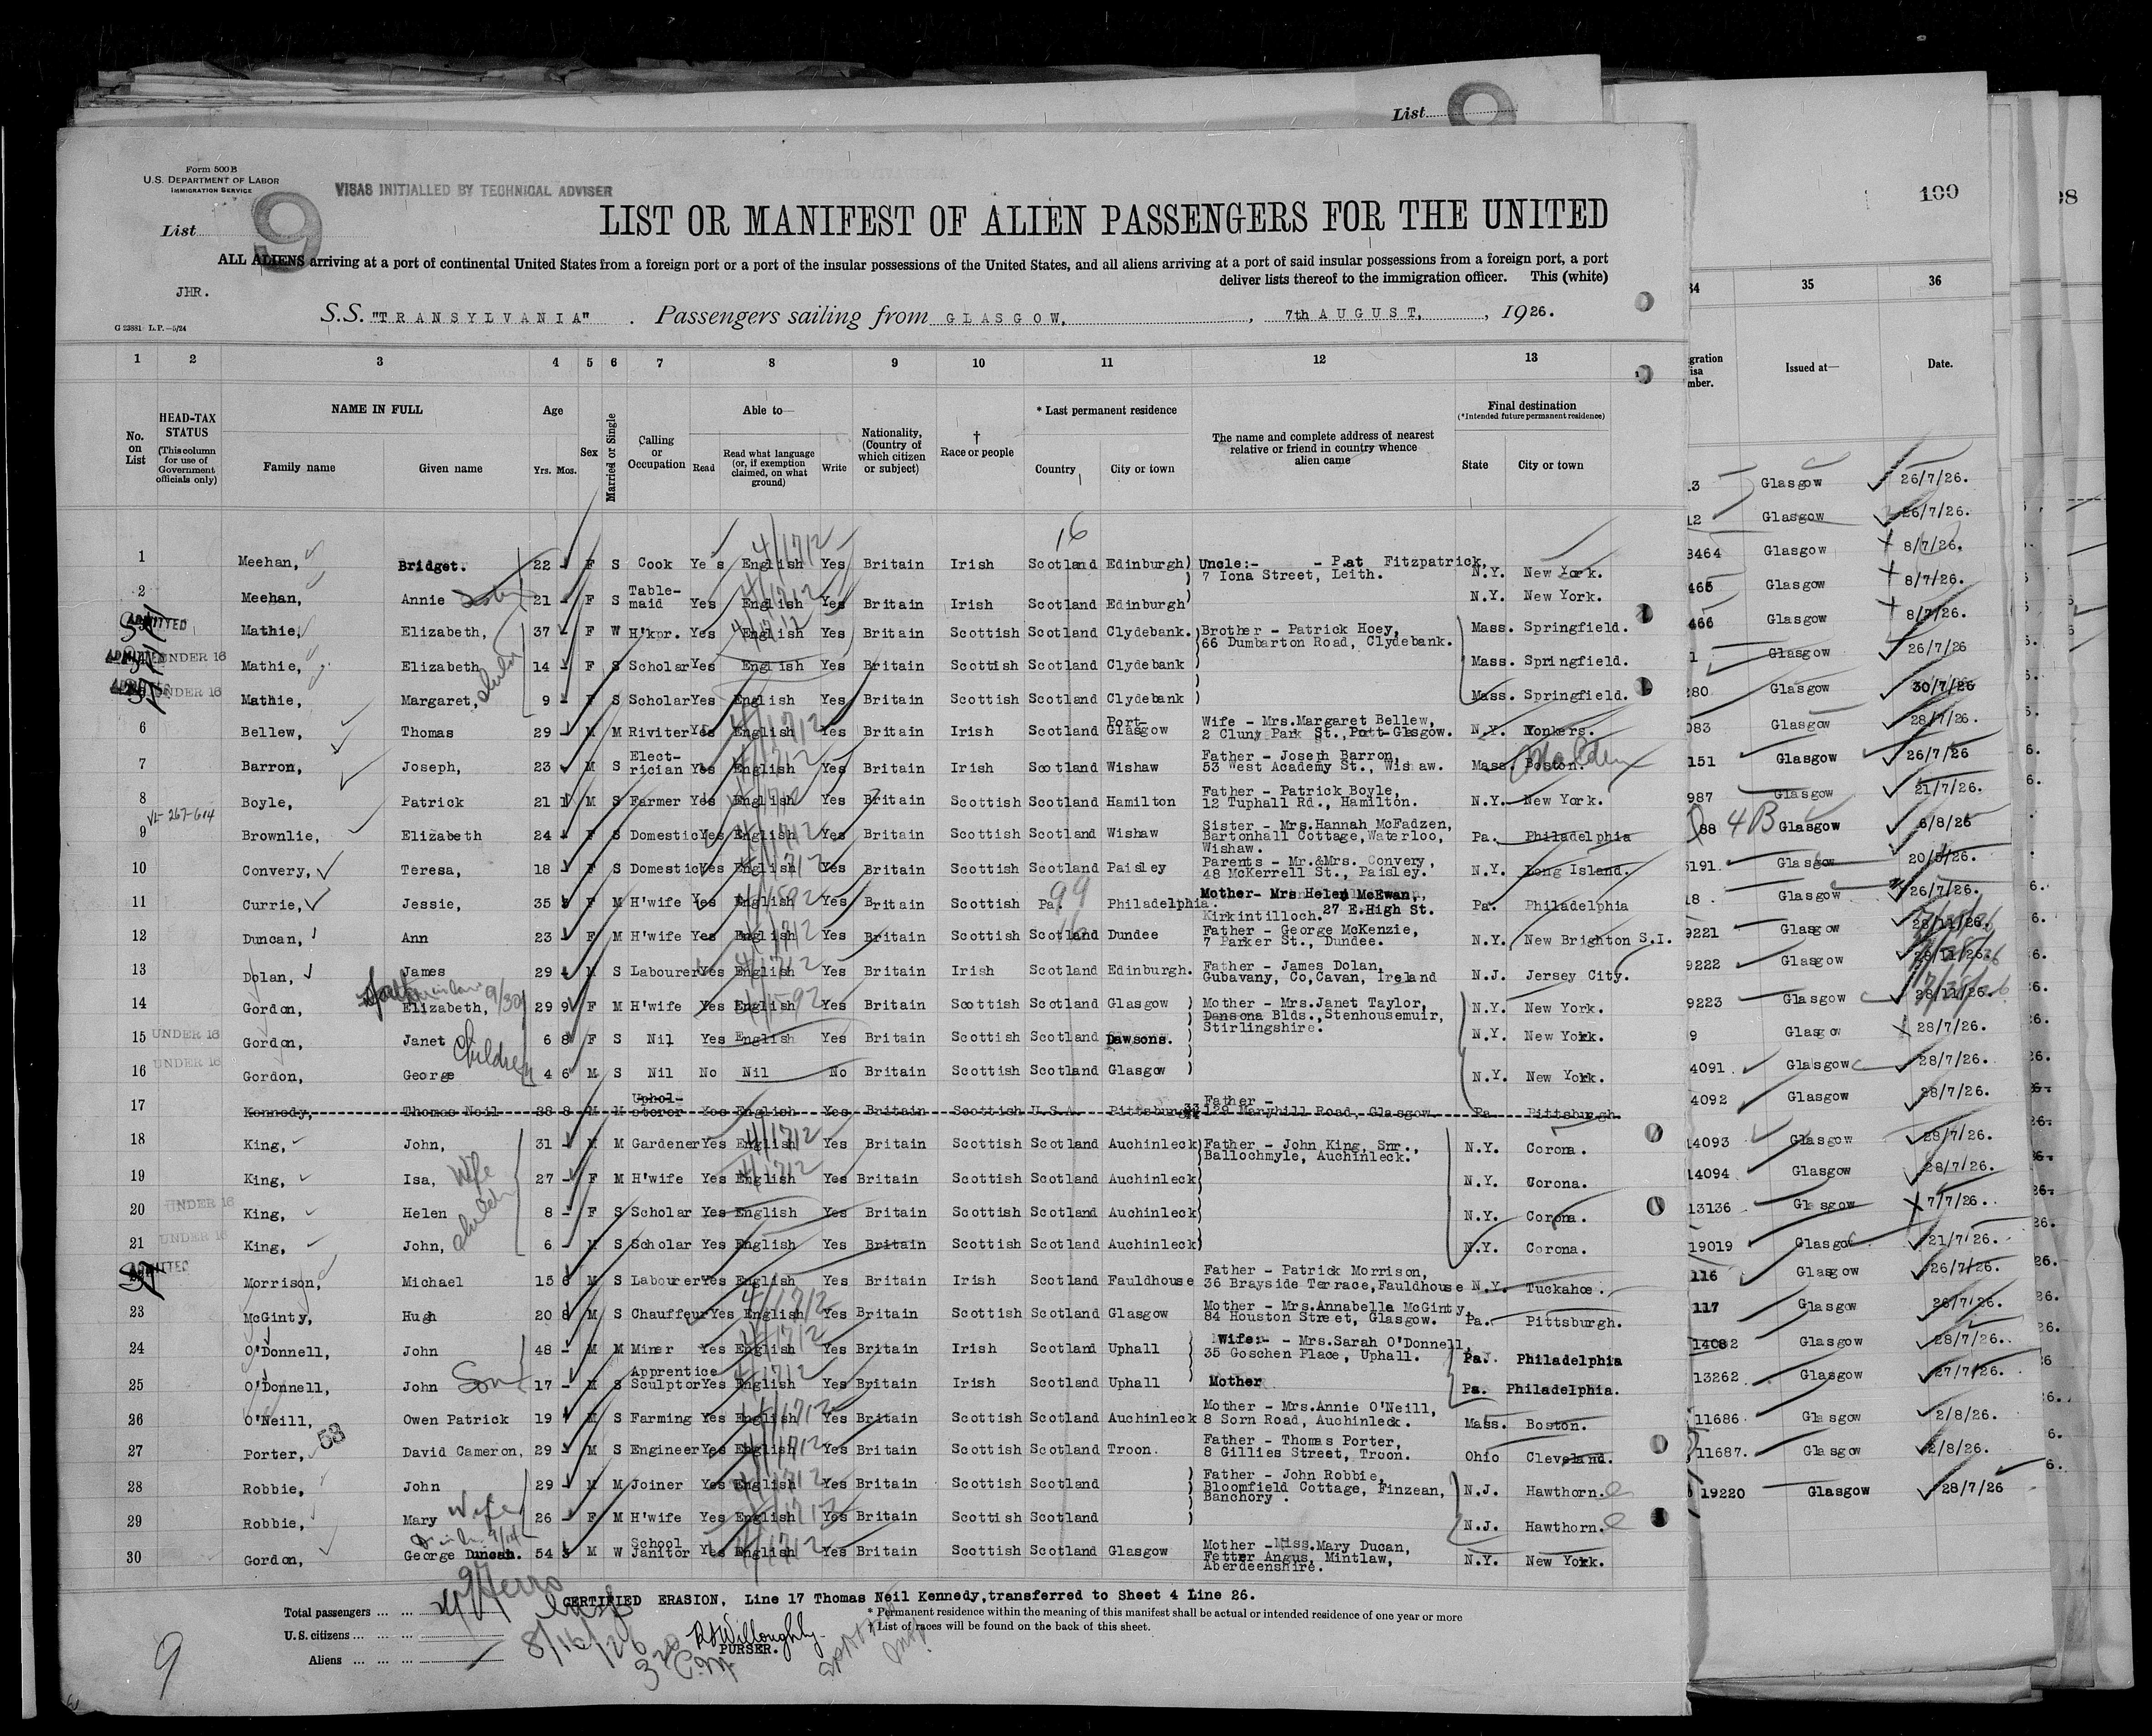 List
9
Form 500 B
U.S. DEPARTMENT OF LABOR
IMMIGRATION SERVICE
VISAS INITIALLED BY TECHNICAL ADVISER
100
98
List 9
LIST OR MANIFEST OF ALIEN PASSENGERS FOR THE UNITED
ALL ALIENS arriving at a port of continental United States from a foreign port or a port of the insular possessions of the United States, and all aliens arriving at a port of said insular possessions from a foreign port, a port
deliver lists thereof to the immigration officer. This (white)
JHR.
G 23881 L.P.—5/24
S.S. "TRANSYLVANIA". Passengers sailing from GLASGOW, 7th AUGUST, 1926.
1 2 3 4 5 6 7 8 9 10 11 12 13
34 35 36
No. on List
HEAD-TAX STATUS
(This column for use of Government officials only)
NAME IN FULL
Family name Given name
Age
Yrs. Mos.
Sex
Married or Single
Calling or Occupation
Able to—
Read
Read what language (or, if exemption claimed, on what ground)
Write
Nationality, (Country of which citizen or subject)
† Race or people
* Last permanent residence
Country City or town
The name and complete address of nearest relative or friend in country whence alien came
Final destination
(*Intended future permanent residence)
State City or town
Issued at— Date.
16
1 Meehan, Bridget. 22 - F S Cook Yes English Yes Britain Irish Scotland Edinburgh) Uncle:- - Pat Fitzpatrick, 7 Iona Street, Leith. N.Y. New York.
2 Meehan, Annie 21 - F S Table-maid Yes English Yes Britain Irish Scotland Edinburgh) N.Y. New York.
ADMITTED Mathie, Elizabeth, 37 - F W H'kpr. Yes English Yes Britain Scottish Scotland Clydebank. Brother - Patrick Hoey, 66 Dumbarton Road, Clydebank. Mass. Springfield.
ADMITTED UNDER 16 Mathie, Elizabeth 14 - F S Scholar Yes English Yes Britain Scottish Scotland Clydebank Mass. Springfield.
UNDER 16 Mathie, Margaret, 9 - F S Scholar Yes English Yes Britain Scottish Scotland Clydebank Mass. Springfield.
6 Bellew, Thomas 29 - M M Riviter Yes English Yes Britain Irish Scotland Port-Glasgow Wife - Mrs.Margaret Bellew, 2 Cluny Park St., Port-Glasgow. N.Y. Yonkers.
7 Barron, Joseph, 23 M S Elect-rician Yes English Yes Britain Irish Scotland Wishaw Father - Joseph Barron, 53 West Academy St., Wishaw. Mass. Boston. Malden
8 Boyle, Patrick 21 1 M S Farmer Yes English Yes Britain Scottish Scotland Hamilton Father - Patrick Boyle, 12 Tuphall Rd., Hamilton. N.Y. New York.
9 Brownlie, Elizabeth 24 - F S Domestic Yes English Yes Britain Scottish Scotland Wishaw Sister - Mrs.Hannah McFadzen, Bartonhall Cottage, Waterloo, Wishaw. Pa. Philadelphia
10 Convery, Teresa, 18 F S Domestic Yes English Yes Britain Scottish Scotland Paisley Parents - Mr.&Mrs. Convery, 48 McKerrell St., Paisley. N.Y. Long Island.
11 Currie, Jessie, 35 F M H'wife Yes English Yes Britain Scottish Pa. 99 Philadelphia. Mother- Mrs Helen McEwan, 27 E.High St. Kirkintilloch. Pa. Philadelphia
12 Duncan, Ann 23 F M H'wife Yes English Yes Britain Scottish Scotland Dundee Father - George McKenzie, 7 Parker St., Dundee. N.Y. New Brighton S.I.
13 Dolan, James 29 M S Labourer Yes English Yes Britain Irish Scotland Edinburgh. Father - James Dolan, Gubavany, Co,Cavan, Ireland N.J. Jersey City.
14 Gordon, Elizabeth, 29 9 F M H'wife Yes English Yes Britain Scottish Scotland Glasgow Mother - Mrs.Janet Taylor, Dansona Blds., Stenhousemuir, Stirlingshire. N.Y. New York.
15 UNDER 16 Gordon, Janet Children 6 8 F S Nil Yes English Yes Britain Scottish Scotland Dawsons. N.Y. New York.
16 UNDER 16 Gordon, George 4 6 M S Nil No Nil No Britain Scottish Scotland Glasgow N.Y. New York.
17 Kennedy, Thomas Neil 28 8 M M Uphol-sterer Yes English Yes Britain Scottish U.S.A. Pittsburgh Father - 129 Maryhill Road, Glasgow. Pa. Pittsburgh.
18 King, John, 31 - M M Gardener Yes English Yes Britain Scottish Scotland Auchinleck) Father - John King, Snr., Ballochmyle, Auchinleck. N.Y. Corona.
19 King, Isa, Wife 27 - F M H'wife Yes English Yes Britain Scottish Scotland Auchinleck) N.Y. Corona.
20 UNDER 16 King, Helen 8 - F S Scholar Yes English Yes Britain Scottish Scotland Auchinleck) N.Y. Corona.
21 UNDER 16 King, John, 6 - M S Scholar Yes English Yes Britain Scottish Scotland Auchinleck) N.Y. Corona.
ADMITTED Morrison, Michael 15 6 M S Labourer Yes English Yes Britain Irish Scotland Fauldhouse Father - Patrick Morrison, 36 Brayside Terrace, Fauldhouse N.Y. Tuckahoe.
23 McGinty, Hugh 20 8 M S Chauffeur Yes English Yes Britain Scottish Scotland Glasgow Mother - Mrs.Annabella McGinty, 84 Houston Street, Glasgow. Pa. Pittsburgh.
24 O'Donnell, John 48 - M M Miner Yes English Yes Britain Irish Scotland Uphall Wife:- - Mrs.Sarah O'Donnell, 35 Goschen Place, Uphall. Pa. Philadelphia
25 O'Donnell, John Son 17 - M S Apprentice Sculptor Yes English Yes Britain Irish Scotland Uphall Mother Pa. Philadelphia.
26 O'Neill, Owen Patrick 19 M S Farming Yes English Yes Britain Scottish Scotland Auchinleck Mother - Mrs.Annie O'Neill, 8 Sorn Road, Auchinleck. Mass. Boston.
27 Porter, 53 David Cameron, 29 M S Engineer Yes English Yes Britain Scottish Scotland Troon. Father - Thomas Porter, 8 Gillies Street, Troon. Ohio Cleveland.
28 Robbie, John 29 M M Joiner Yes English Yes Britain Scottish Scotland Father - John Robbie, Bloomfield Cottage, Finzean, Banchory. N.J. Hawthorn.
29 Robbie, Mary Wife 26 - F M H'wife Yes English Yes Britain Scottish Scotland N.J. Hawthorn.
30 Gordon, George Duncan. 54 3 M W School Janitor Yes English Yes Britain Scottish Scotland Glasgow Mother -Miss.Mary Ducan, Fetter Angus, Mintlaw, Aberdeenshire. N.Y. New York.
13 Glasgow 26/7/26.
12 Glasgow 26/7/26.
8464 Glasgow 8/7/26.
465 Glasgow 8/7/26.
466 Glasgow 8/7/26.
1 Glasgow 26/7/26
280 Glasgow 30/7/26
083 Glasgow 28/7/26.
151 Glasgow 26/7/26
987 Glasgow 21/7/26.
88 4B Glasgow 6/8/26
5191 Glasgow 20/5/26.
18 Glasgow 26/7/26.
9221 Glasgow 28/11/26
9222 Glasgow 28/11/26.
9223 Glasgow 28/11/26.
9 Glasgow 28/7/26.
4091 Glasgow 28/7/26.
4092 Glasgow 28/7/26.
14093 Glasgow 28/7/26.
14094 Glasgow 28/7/26.
13136 Glasgow 7/7/26.
19019 Glasgow 21/7/26.
116 Glasgow 26/7/26.
117 Glasgow 26/7/26.
14082 Glasgow 28/7/26.
13262 Glasgow 27/7/26.
11686 Glasgow 2/8/26.
11687. Glasgow 2/8/26.
19220 Glasgow 28/7/26
CERTIFIED ERASION, Line 17 Thomas Neil Kennedy, transferred to Sheet 4 Line 26.
Total passengers
U.S. citizens
Aliens
* Permanent residence within the meaning of this manifest shall be actual or intended residence of one year or more
† List of races will be found on the back of this sheet.
8/16/26
Willoughby
PURSER.
9